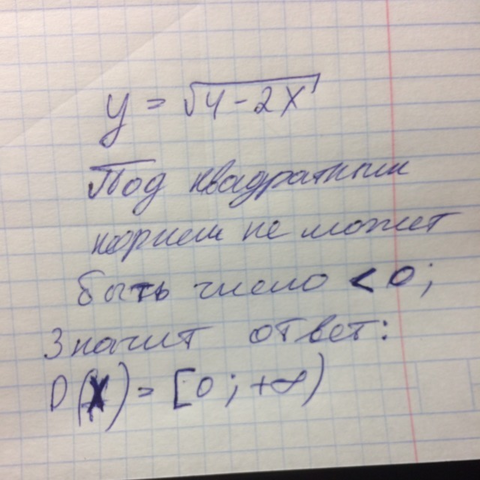 y = √4 - 2x
Под квадратным
корнем не может
быть число < 0;
Значит ответ:
D(x) = [0; +∞)